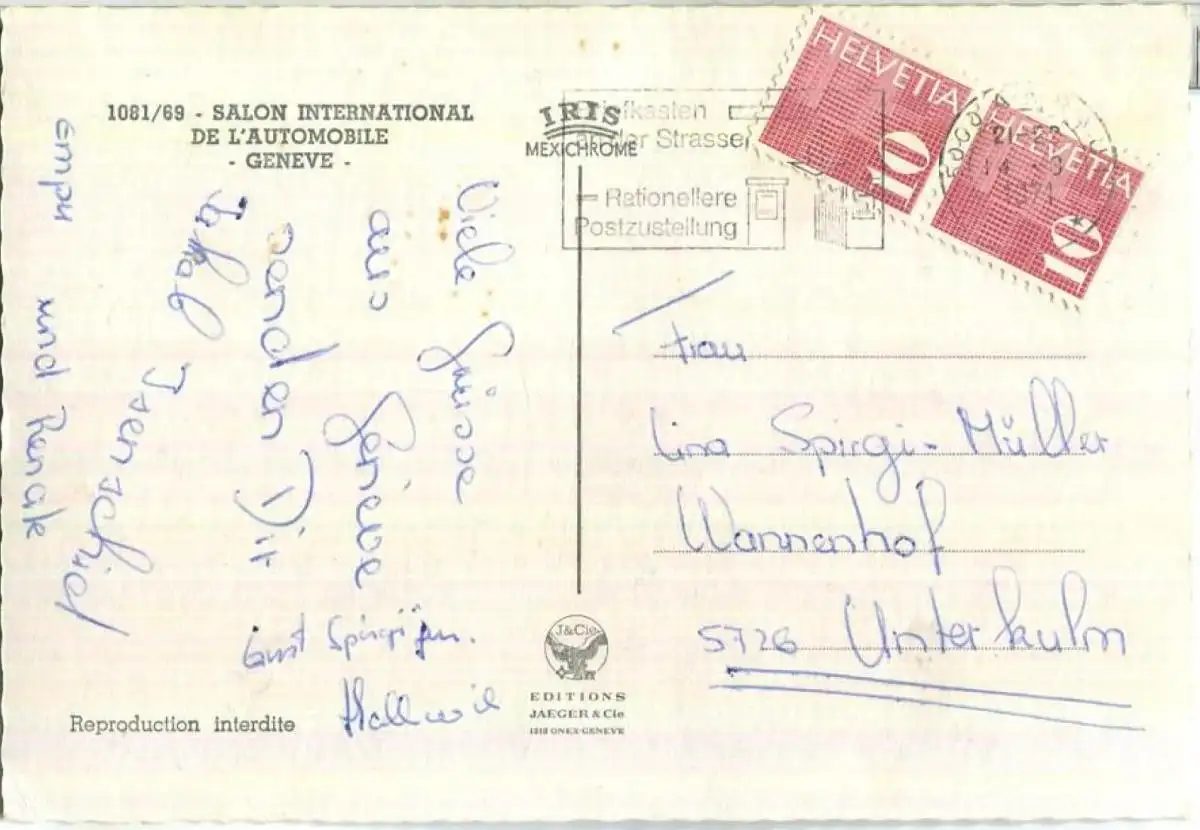 1081/69 - SALON INTERNATIONAL
DE L'AUTOMOBILE
- GENEVE -
IRIS
MEXICHROME
Viele Grüsse
aus Genève
senden Dir
Jakob Isenschied
und Renate
Ernst Spirgi jun.
Hallwil
Reproduction interdite
J&Cie
EDITIONS
JAEGER & Cie
1213 ONEX-GENEVE
Briefkasten
an der Strasse,
- Rationellere
Postzustellung
HELVETIA
10
HELVETIA
10
Frau
Lina Spirgi-Müller
Wannenhof
5726 Unterkulm